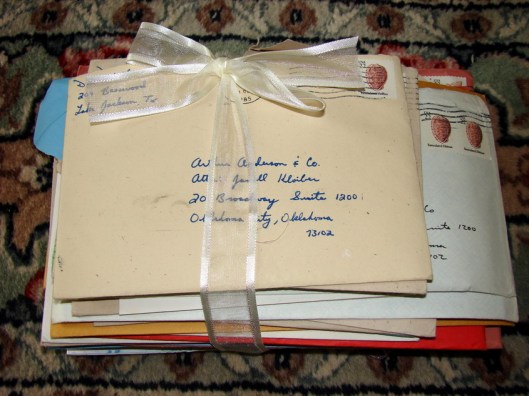 209 Basswood
Lake Jackson Tx
Arthur Anderson & Co.
Attn: Janell Kloiber
20 Broadway Suite 1200
Oklahoma City, Oklahoma
73102
Co
Suite 1200